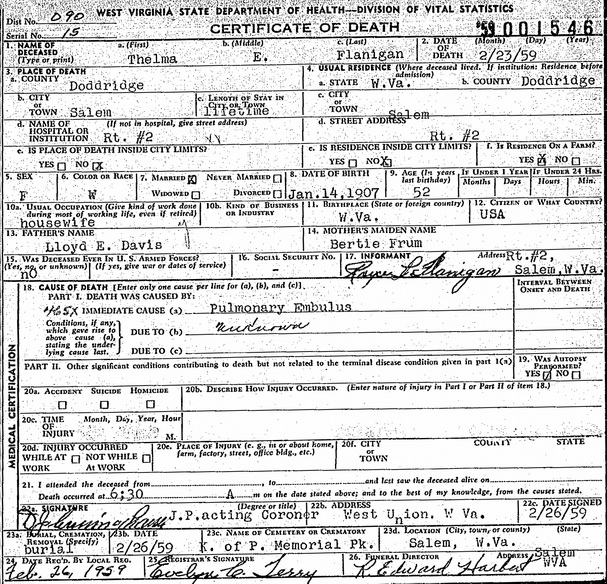 WEST VIRGINIA STATE DEPARTMENT OF HEALTH—DIVISION OF VITAL STATISTICS
Dist No. 090
Serial No. 15
CERTIFICATE OF DEATH
59 001546
1. NAME OF DECEASED (Type or print) a. (First) Thelma b. (Middle) E. c. (Last) Flanigan 2. DATE OF DEATH (Month) (Day) (Year) 2/23/59
3. PLACE OF DEATH
a. COUNTY Doddridge
4. USUAL RESIDENCE (Where deceased lived. If institution: Residence before admission)
a. STATE W.Va. b. COUNTY Doddridge
b. CITY OR TOWN Salem c. LENGTH OF STAY IN CITY OR TOWN lifetime c. CITY OR TOWN Salem
d. NAME OF HOSPITAL OR INSTITUTION (If not in hospital, give street address) Rt. #2 d. STREET ADDRESS Rt. #2
e. IS PLACE OF DEATH INSIDE CITY LIMITS? YES NO X e. IS RESIDENCE INSIDE CITY LIMITS? YES NO X f. IS RESIDENCE ON A FARM? YES X NO
5. SEX F 6. COLOR OR RACE W 7. MARRIED X NEVER MARRIED WIDOWED DIVORCED 8. DATE OF BIRTH Jan.14,1907 9. AGE (In years last birthday) 52 IF UNDER 1 YEAR Months Days IF UNDER 24 HRS. Hours Min.
10a. USUAL OCCUPATION (Give kind of work done during most of working life, even if retired) housewife 10b. KIND OF BUSINESS OR INDUSTRY 11. BIRTHPLACE (State or foreign country) W.Va. 12. CITIZEN OF WHAT COUNTRY? USA
13. FATHER'S NAME Lloyd E. Davis 14. MOTHER'S MAIDEN NAME Bertie Frum
15. WAS DECEASED EVER IN U.S. ARMED FORCES? (Yes, no, or unknown) (If yes, give war or dates of service) no 16. SOCIAL SECURITY NO. - 17. INFORMANT Flanigan Address Rt.#2, Salem,W.Va.
18. CAUSE OF DEATH [Enter only one cause per line for (a), (b), and (c).] INTERVAL BETWEEN ONSET AND DEATH
PART I. DEATH WAS CAUSED BY:
465X IMMEDIATE CAUSE (a) Pulmonary Embulus
Conditions, if any, which gave rise to above cause (a), stating the underlying cause last. DUE TO (b) unknown
DUE TO (c)
PART II. Other significant conditions contributing to death but not related to the terminal disease condition given in part I(a) 19. WAS AUTOPSY PERFORMED? YES NO
MEDICAL CERTIFICATION
20a. ACCIDENT SUICIDE HOMICIDE 20b. DESCRIBE HOW INJURY OCCURRED. (Enter nature of injury in Part I or Part II of item 18.)
20c. TIME OF INJURY Month, Day, Year, Hour M.
20d. INJURY OCCURRED WHILE AT WORK NOT WHILE AT WORK 20e. PLACE OF INJURY (e. g., in or about home, farm, factory, street, office bldg., etc.) 20f. CITY OR TOWN COUNTY STATE
21. I attended the deceased from , to and last saw the deceased alive on
Death occurred at 6:30 A m on the date stated above; and to the best of my knowledge, from the causes stated.
22a. SIGNATURE J.P.acting Coroner (Degree or title) 22b. ADDRESS West Union. W Va. 22c. DATE SIGNED 2/26/59
23a. BURIAL, CREMATION, REMOVAL (Specify) burial 23b. DATE 2/26/59 23c. NAME OF CEMETERY OR CREMATORY K. of P. Memorial Pk. 23d. LOCATION (City, town, or county) (State) Salem, W.Va.
24. DATE REC'D. BY LOCAL REG. Feb. 26, 1959 25. REGISTRAR'S SIGNATURE Evelyn C. Terry 26. FUNERAL DIRECTOR R Edward Harbert ADDRESS Salem WVA